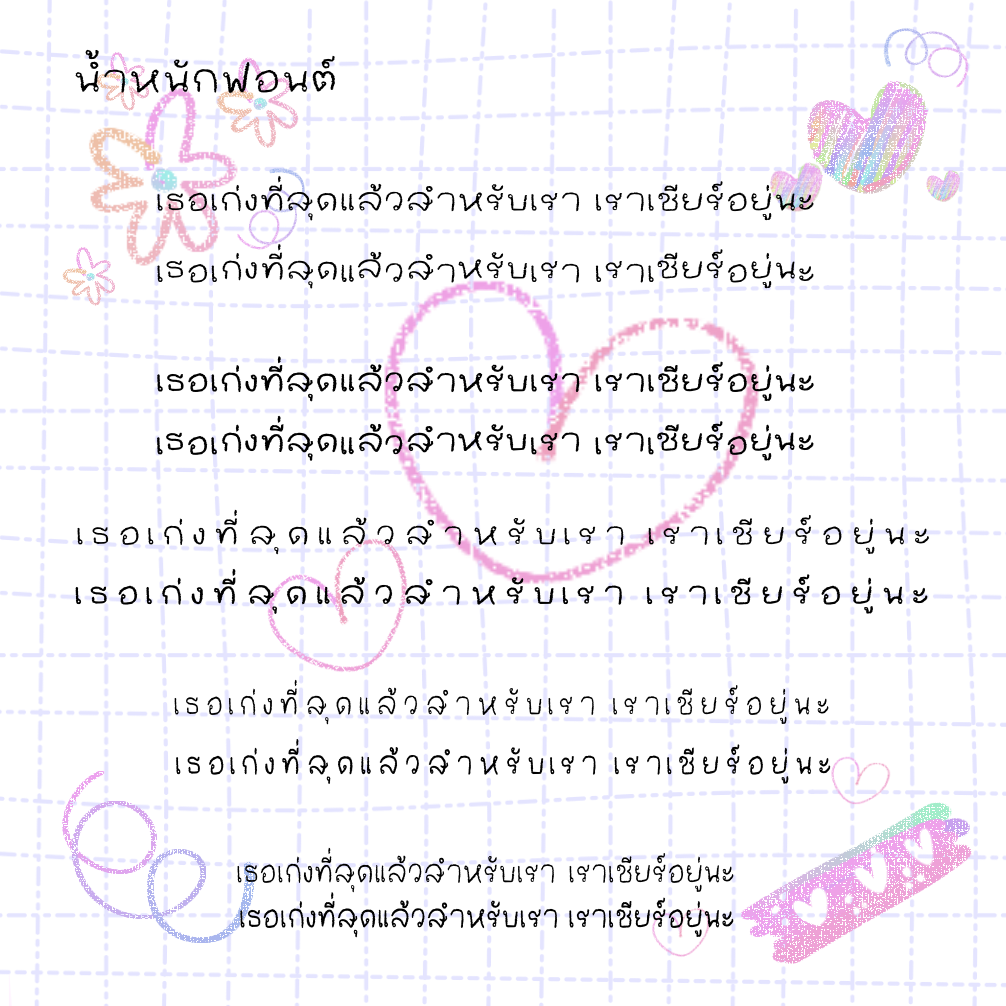 น้ำหนักฟอนต์
เธอเก่งที่สุดแล้วสำหรับเรา เราเชียร์อยู่นะ
เธอเก่งที่สุดแล้วสำหรับเรา เราเชียร์อยู่นะ
เธอเก่งที่สุดแล้วสำหรับเรา เราเชียร์อยู่นะ
เธอเก่งที่สุดแล้วสำหรับเรา เราเชียร์อยู่นะ
เธอเก่งที่สุดแล้วสำหรับเรา เราเชียร์อยู่นะ
เธอเก่งที่สุดแล้วสำหรับเรา เราเชียร์อยู่นะ
เธอเก่งที่สุดแล้วสำหรับเรา เราเชียร์อยู่นะ
เธอเก่งที่สุดแล้วสำหรับเรา เราเชียร์อยู่นะ
เธอเก่งที่สุดแล้วสำหรับเรา เราเชียร์อยู่นะ
เธอเก่งที่สุดแล้วสำหรับเรา เราเชียร์อยู่นะ